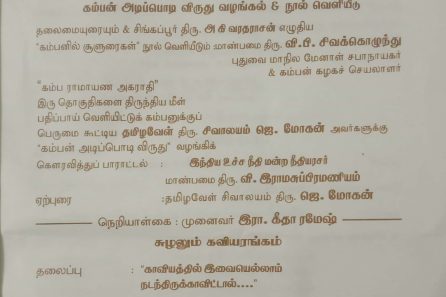 கம்பன் அடிப்பொடி விருது வழங்கல் & நூல் வெளியீடு
தலைமையுரையும் & சிங்கப்பூர் திரு. அ கி வரதராசன் எழுதிய
"கம்பனில் சூளுரைகள்" நூல் வெளியீடும் மாண்பமை திரு. வி.பி. சிவக்கொழுந்து
புதுவை மாநில மேனாள் சபாநாயகர்
& கம்பன் கழகச் செயலாளர்
"கம்ப ராமாயண அகராதி"
இரு தொகுதிகளை திருந்திய மீள்
பதிப்பாய் வெளியிட்டுக் கம்பனுக்குப்
பெருமை கூட்டிய தமிழவேள் திரு. சிவாலயம் ஜெ. மோகன் அவர்களுக்கு
"கம்பன் அடிப்பொடி விருது" வழங்கிக்
கௌரவித்துப் பாராட்டல் : இந்திய உச்ச நீதி மன்ற நீதியரசர்
மாண்பமை திரு. வி. இராமசுப்பிரமணியம்
ஏற்புரை : தமிழவேள் சிவாலயம் திரு. ஜெ. மோகன்
நெறியாள்கை : முனைவர் இரா. கீதா ரமேஷ்
சுழலும் கவியரங்கம்
தலைப்பு : "காவியத்தில் இவையெல்லாம்
நடந்திருக்காவிட்டால்...."